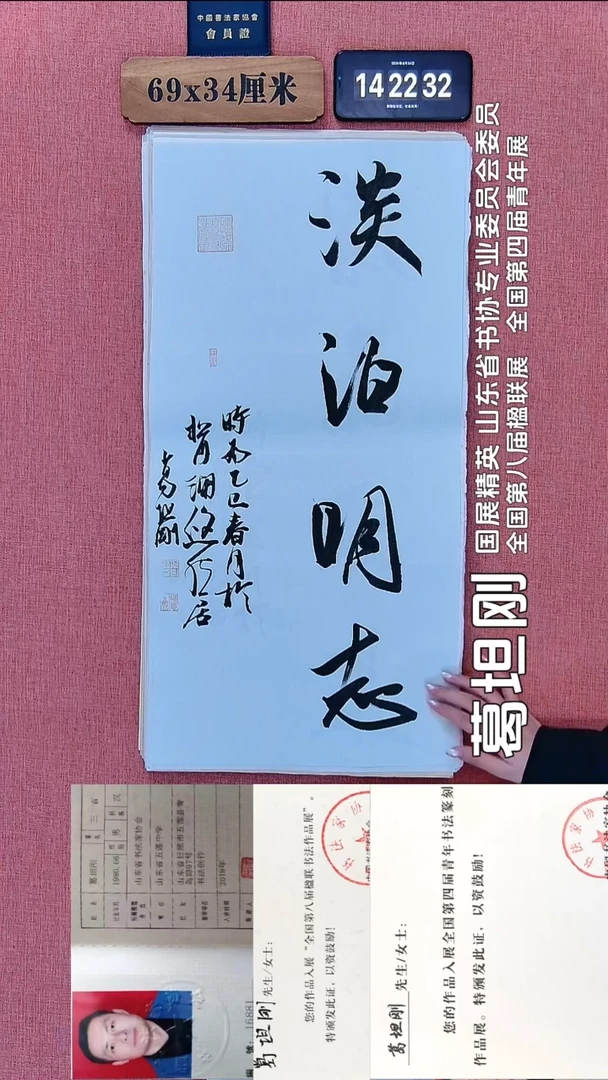 中國書法家協會
會員證
69x34厘米
14 22 32
淡泊明志
時在乙巳春月於
葛坦剛
国展精英 山东省书协专业委员会委员
全国第八届楹联展 全国第四届青年展
葛坦刚
葛坦刚
1980.06
山东省书法家协会
山东省五莲中学
书法创作
2018年
16881
葛坦刚 先生/女士:
您的作品入展"全国第八届楹联书法作品展"。
特颁发此证,以资鼓励!
葛坦刚 先生/女士:
您的作品入展全国第四届青年书法篆刻
作品展。特颁发此证,以资鼓励!